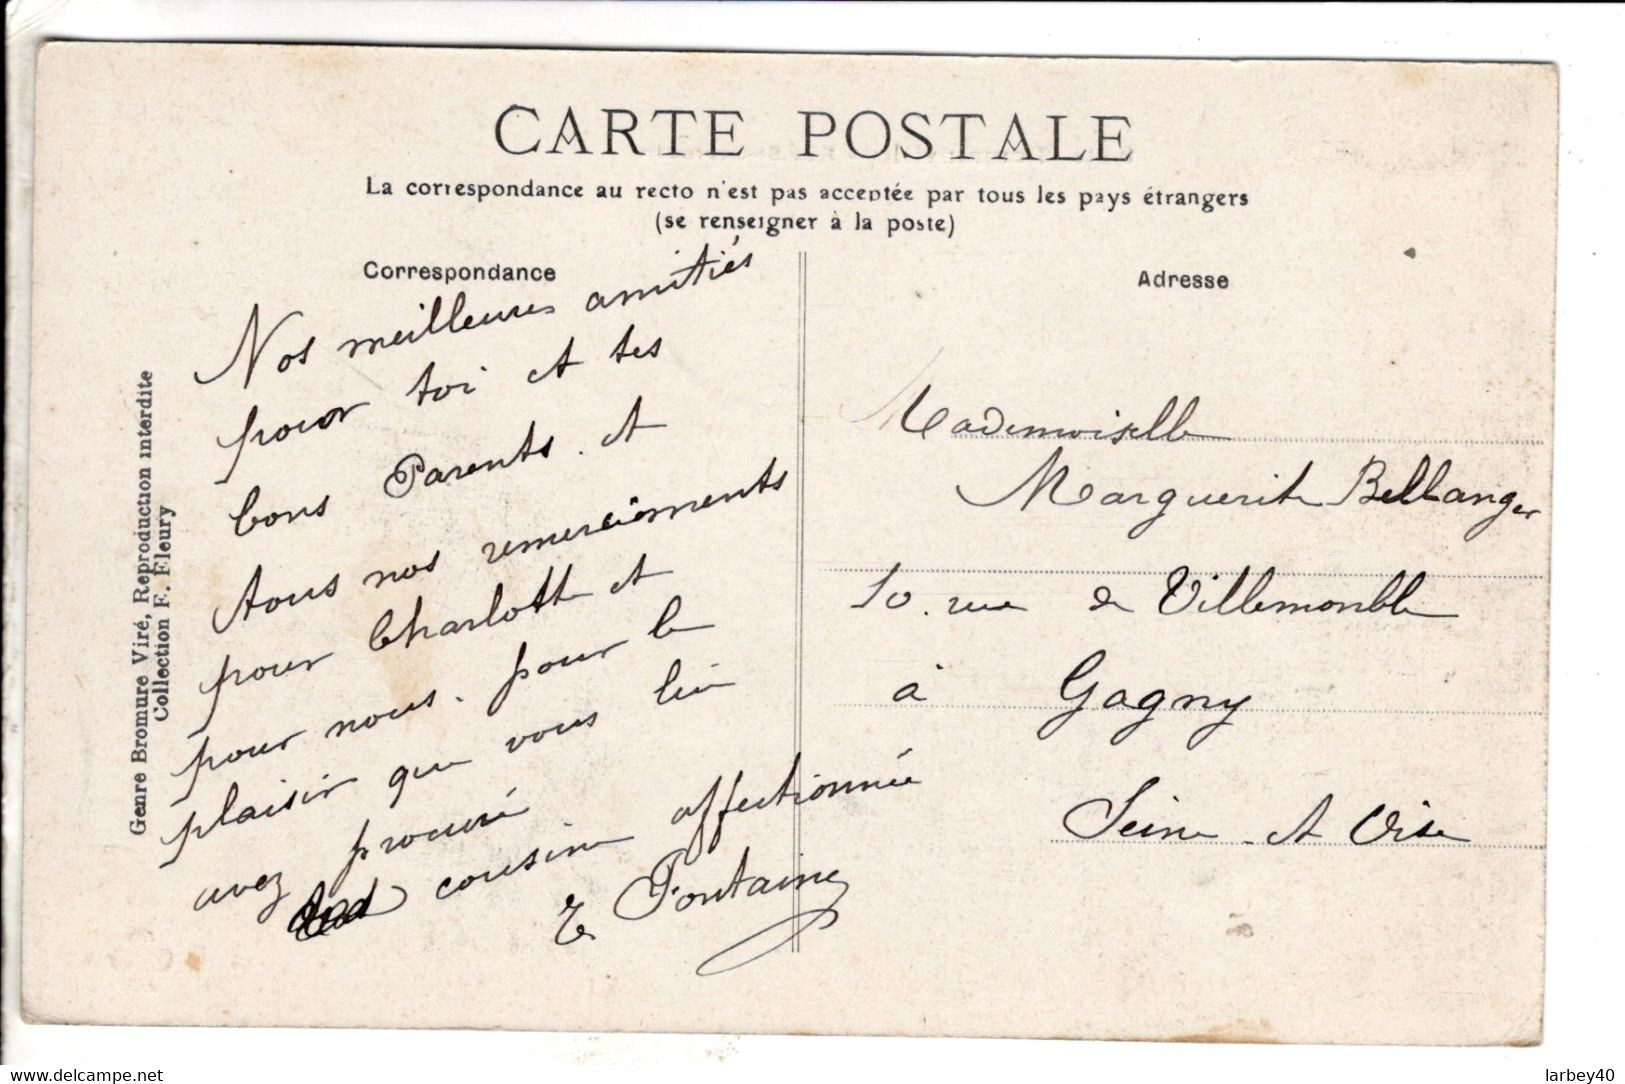 CARTE POSTALE
La correspondance au recto n'est pas acceptée par tous les pays étrangers
(se renseigner à la poste)
Correspondance
Nos meilleures amitiés
pour toi et tes
bons Parents. et
tous nos remerciements
pour Charlotte et
pour nous. pour le
plaisir que vous lui
avez procuré
cousine affectionnée
E Fontaine
Adresse
Mademoiselle
Marguerite Bellanger
10. rue de Villemomble
à Gagny
Seine et Oise
Genre Bromure Viré, Reproduction interdite
Collection F. Fleury
www.delcampe.net
larbey40